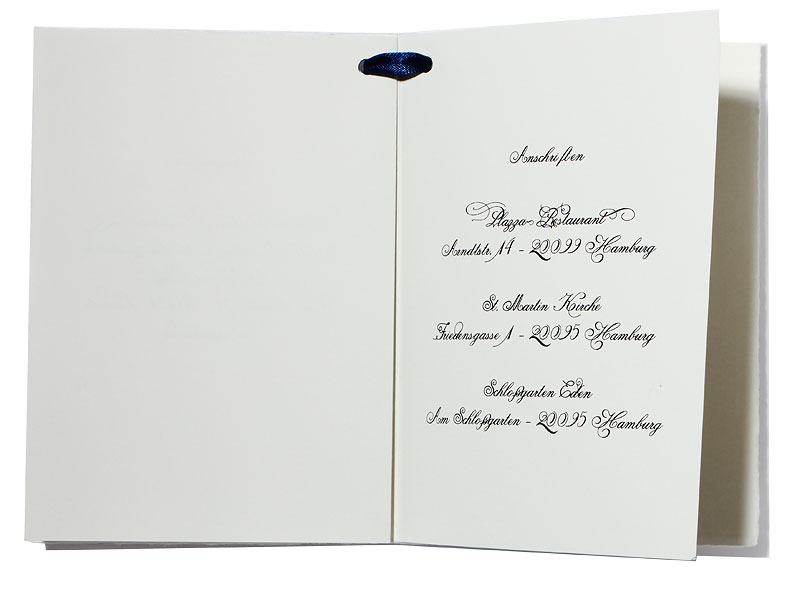 Anschriften
Plazza-Restaurant
Arndtstr. 14 - 20099 Hamburg
St. Martin Kirche
Friedensgasse 1 - 20095 Hamburg
Schloßgarten Eden
Am Schloßgarten - 20095 Hamburg